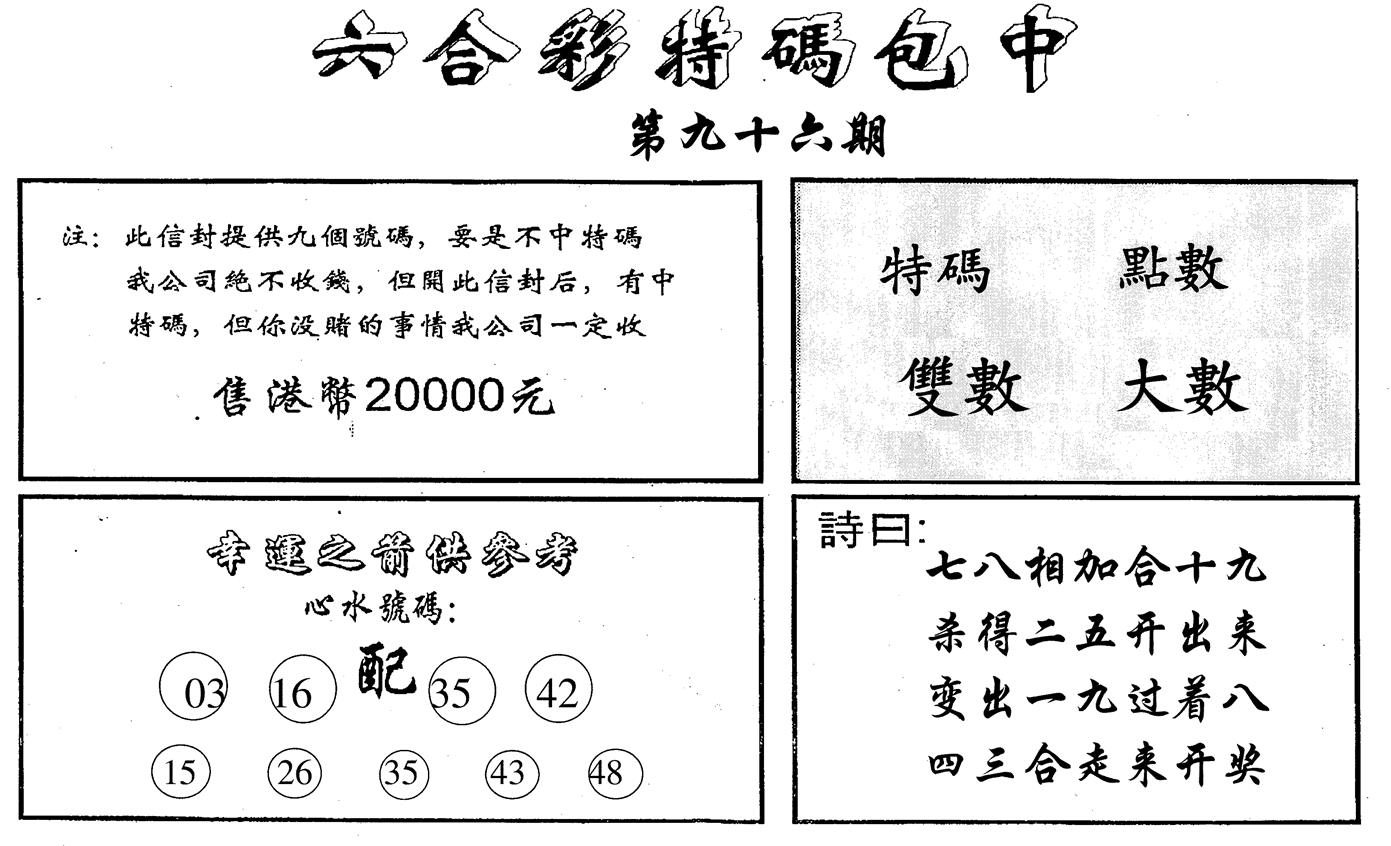 六合彩特碼包中
第九十六期
注：此信封提供九個號碼，要是不中特碼
我公司絕不收錢，但開此信封后，有中
特碼，但你没賭的事情我公司一定收
售港幣20000元
特碼 點數
雙數 大數
幸運之箭供參考
心水號碼：
03 16 配 35 42
15 26 35 43 48
詩曰：
七八相加合十九
杀得二五开出来
变出一九过着八
四三合走来开奖